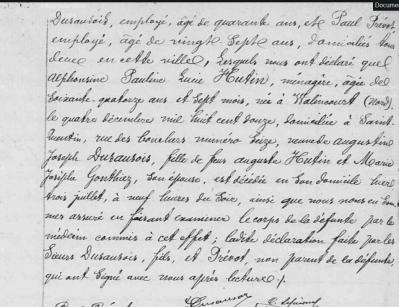 Docume
Dusausois, employé, âgé de quarante ans, et Paul Prévot,
employé, âgé de vingt sept ans, domiciliés tous
deux en cette ville, lesquels nous ont déclaré que
Alphonsine Pauline Lucie Hutin, ménagère, âgée de
soixante-quatorze ans et sept mois, née à Walincourt (Nord),
le quatre décembre mil huit cent douze, domiciliée à Saint-
Quentin, rue des Bouchers numéro seize, veuve Augustin
Joseph Dusausois, fille de feus Auguste Hutin et Marie
Josèphe son épouse, est décédée en son domicile hier
trois juillet, à neuf heures du soir, ainsi que nous nous en som-
mes assuré en faisant examiner le corps de la défunte par le
médecin commis à cet effet ; ladite déclaration faite par les
sieurs Dusausois, fils, et Prévot, non parent de la défunte,
qui ont signé avec nous après lecture ./.